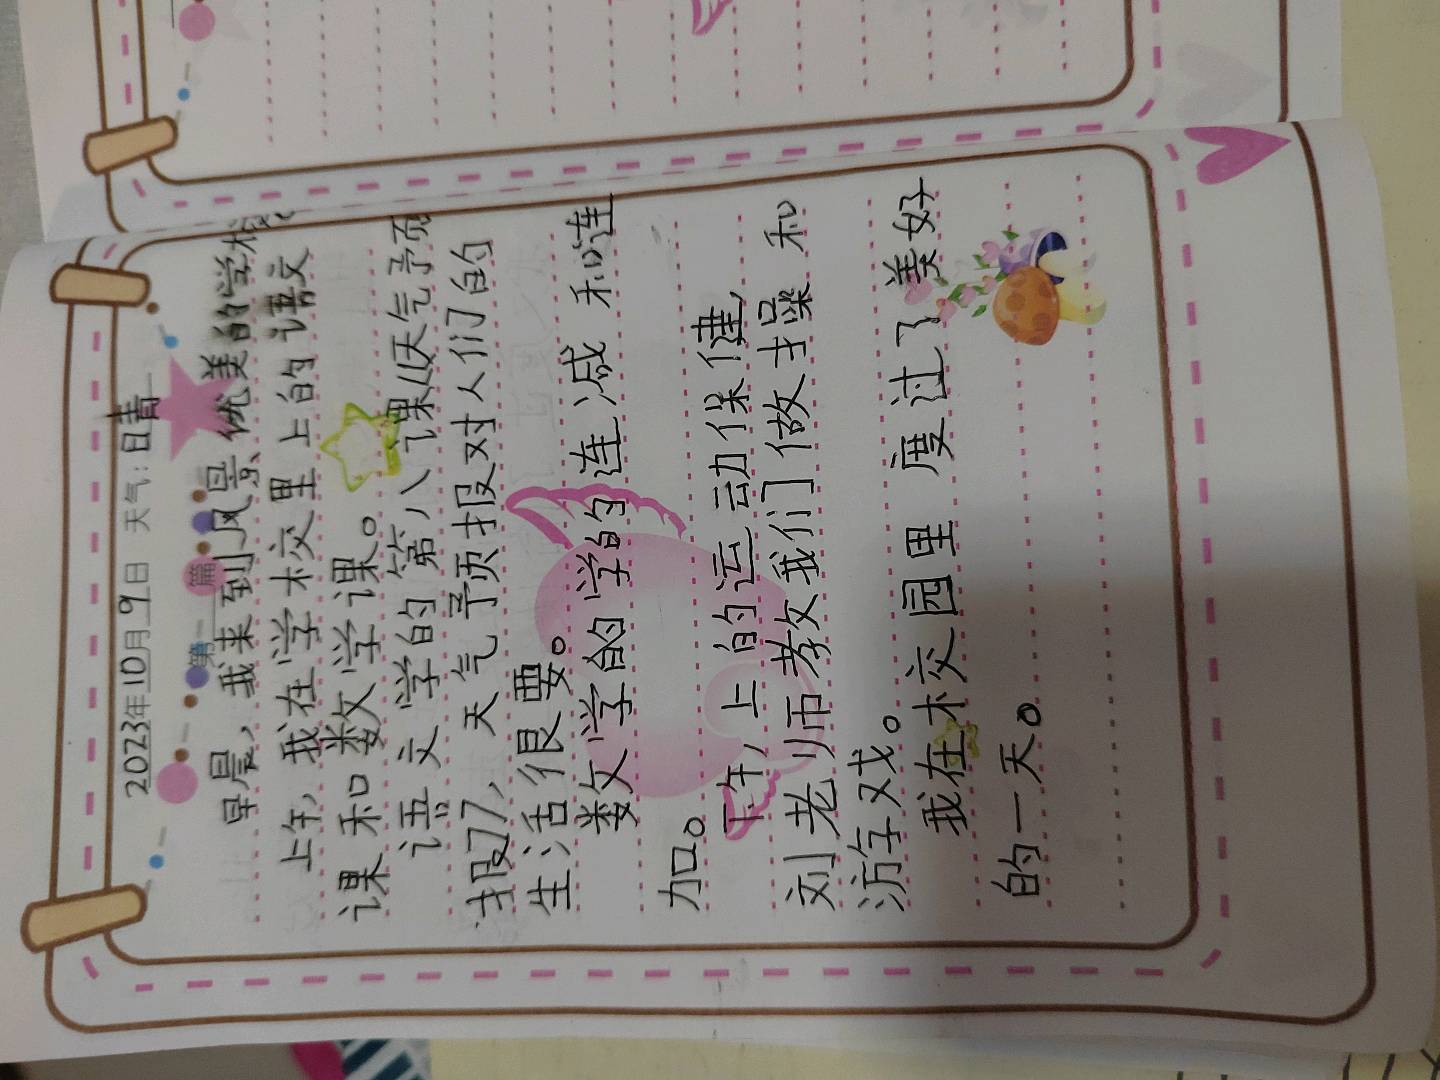 2023年10月9日 天气：日青
第 篇
早晨，我来到风景优美的学校
上午，我在学校里上的语文
课和数文学课。
语文学的第八课《天气予页
报》，天气予页报对人们的
生活很要。
数文学的学的连减和连
加。
下午，上的运动保健，
刘老师教我们做扌操和
游字戏。
我在校园里度过了美好
的一天。